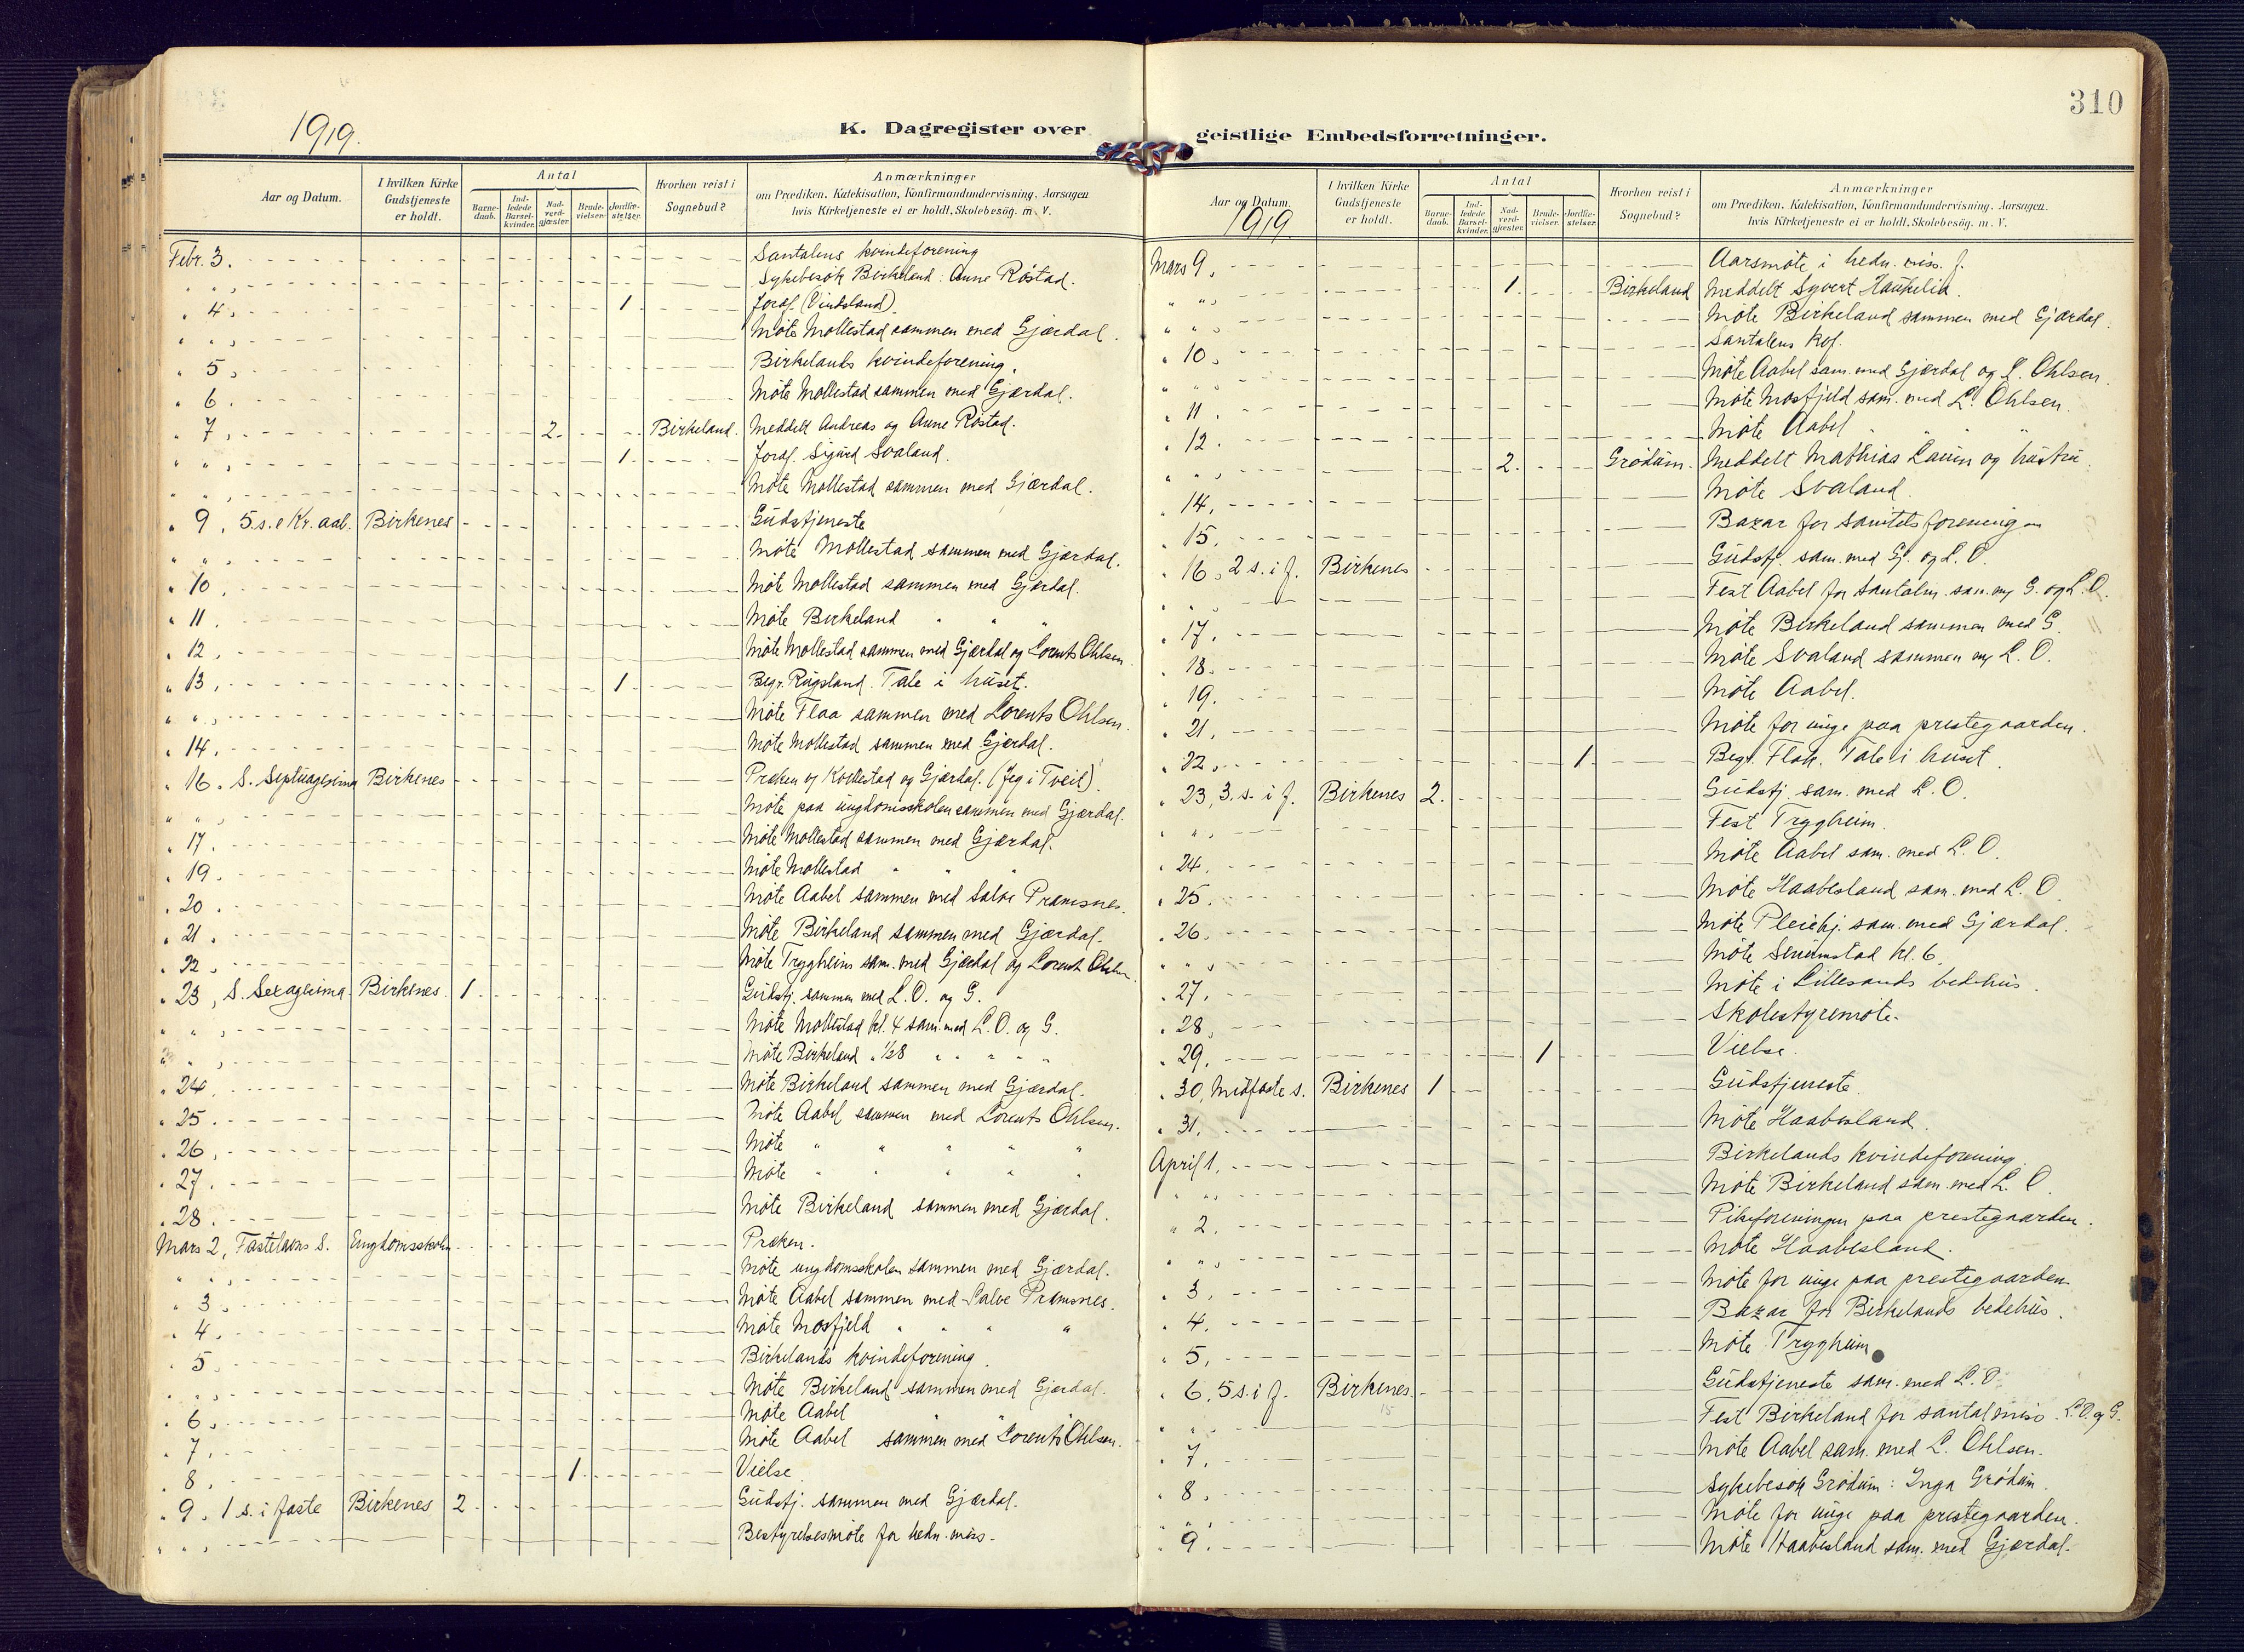 310
1919.
K. Dagregister over geistlige Embedsforretninger.
Aar og Datum.
I hvilken Kirke Gudstjeneste er holdt.
Antal
Barnedaab.
Indledede Barselkvinder.
Nadverdgjæster.
Brudevielser.
Jordfæstelser.
Hvorhen reist i Sognebud?
Anmærkninger
om Prædiken, Katekisation, Konfirmandundervisning, Aarsagen
hvis Kirketjeneste ei er holdt, Skolebesög. m. V.
Febr. 3. Santalens kvindeforening
" " , Sykebesøk Birkeland: Anne Røstad.
" 4, 1 Joraf. (Vindsland)
" " , Møte Mollestad sammen med Gjærdal.
" 5, Birkelands kvindeforening.
" 6. Møte Mollestad sammen med Gjærdal.
" 7, 2. Birkeland. Meddelt Andreas og Anne Røstad.
" " , 1. Joraf. Sigurd Svaland.
" " , Møte Mollestad sammen med Gjærdal.
" 9, 5. s. e Kr. aab. Birkenes Gudstjeneste
" " , Møte Mollestad sammen med Gjærdal.
" 10, Møte Mollestad sammen med Gjærdal.
" 11. Møte Birkeland " " "
" 12, Møte Mollestad sammen med Gjærdal og Lorents Ohlsen.
" 13, 1. Begr. Rugsland. Tale i huset.
" " , Møte Flaa sammen med Lorents Ohlsen.
" 14. Møte Mollestad sammen med Gjærdal.
" 16. S. Septuagesima Birkenes Præken og Kollestad og Gjærdal. (Jeg i Tveit)
" " , Møte paa ungdomsskolen sammen med Gjærdal.
" 17. Møte Mollestad sammen med Gjærdal.
" 19. Møte Mollestad " " "
" 20. Møte Aabel sammen med Salve Pramsnes.
" 21. Møte Birkeland sammen med Gjærdal.
" 22. Møte Trygheim sam. med Gjærdal og Lorents Ohlsen
" 23, S. Sexagesima Birkenes. 1. Gudstj. sammen med L. O. og G.
" " , Møte Mollestad kl. 4 sam. med L. O. og G.
" " , Møte Birkeland " 1/28 " " " " "
" 24, Møte Birkeland sammen med Gjærdal.
" 25. Møte Aabel sammen med Lorents Ohlsen.
" 26, Møte " " " " "
" 27. Møte " " " " "
" 28. Møte Birkeland sammen med Gjærdal.
Mars 2, Fastelavns S. Ungdomsskolen Præken.
" " , Møte ungdomsskolen sammen med Gjærdal.
" 3, Møte Aabel sammen med Salve Pramsnes.
" 4. Møte Mosfjeld " " " "
" 5. Birkelands kvindeforening.
" " , Møte Birkeland sammen med Gjærdal.
" 6. Møte Aabel " " "
" 7. Møte Aabel sammen med Lorents Ohlsen.
" 8. 1. Vielse.
" 9. 1 s. i faste Birkenes 2. Gudstj. sammen med Gjærdal.
" " , Bestyrelsesmøte for hedn. miss.
Aar og Datum.
1919.
I hvilken Kirke Gudstjeneste er holdt.
Antal
Barnedaab.
Indledede Barselkvinder.
Nadverdgjæster.
Brudevielser.
Jordfæstelser.
Hvorhen reist i Sognebud?
Anmærkninger
om Prædiken, Katekisation, Konfirmandundervisning, Aarsagen
hvis Kirketjeneste ei er holdt, Skolebesög. m. V.
Mars 9, Aarsmøte i hedn. miss. f.
" " , 1. Birkeland Meddelt Syvert Haukelia.
" " , Møte Birkeland sammen med Gjærdal.
" 10, Santalens kvf.
" " , Møte Aabel sam. med Gjærdal og L. Ohlsen.
" 11. Møte Mosfjeld sam. med L. Ohlsen.
" 12. Møte Aabel " " "
" " , 2. Grødum. Meddelt Mathias Lauen og hustru.
" 14, Møte Svaland.
" 15. Bazar for sanitetsforeningen
" 16, 2 s. i f. Birkenes Gudstj. sam. med Gj. og L. O.
" " , Fest Aabel for santalm. sam. m/ G. og L. O.
" 17. Møte Birkeland sammen med G.
" 18. Møte Svaland sammen m/ L. O.
" 19. Møte Aabel.
" 21, Møte for unge paa prestegaarden.
" 22, 1 Begr. Flak. Tale i huset.
" 23, 3. s. i f. Birkenes 2. Gudstj. sam. med L. O.
" " , Fest Trygheim.
" 24. Møte Aabel sam. med L. O.
" 25. Møte Haabesland sam. med L. O.
" 26. Møte Pleiehj. sam. med Gjærdal.
" " , Møte Senumstad kl. 6.
" 27. Møte i Lillesands bedehus.
" 28, Skolestyremøte.
" 29. 1 Vielse.
" 30, Midfaste s. Birkenes 1 Gudstjeneste.
" 31. Møte Haabesland.
April 1. Birkelands kvindeforening.
" " , Møte Birkeland sam. med L. O.
" 2. Pikeforeningen paa prestegaarden.
" " , Møte Haabesland.
" 3, Møte for unge paa prestegaarden
" 4. Bazar for Birkelands bedehus.
" 5, Møte Trygheim
" 6, 5 s. i f. Birkenes. Gudstjeneste sam. med L. O.
" " , Fest Birkeland for santalmiss. L. O. og G.
" 7. Møte Aabel sam. med L. Ohlsen.
" 8, Sykebesøk Grødum: Inga Grødum.
" " , Møte for unge paa prestegaarden.
" 9. Møte Haabesland sam. med Gjærdal.